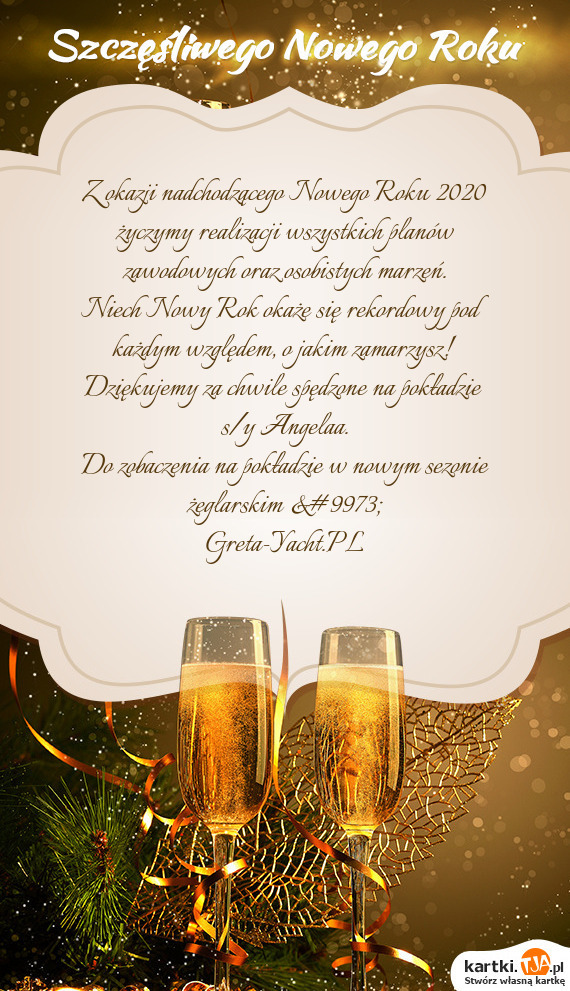 Szczęśliwego Nowego Roku
Z okazji nadchodzącego Nowego Roku 2020
życzymy realizacji wszystkich planów
zawodowych oraz osobistych marzeń.
Niech Nowy Rok okażę się rekordowy pod
każdym względem, o jakim zamarzysz!
Dziękujemy za chwile spędzone na pokładzie
s/y Angelaa.
Do zobaczenia na pokładzie w nowym sezonie
żeglarskim &#9973;
Greta-Yacht.PL
kartki.TJA.pl
Stwórz własną kartkę